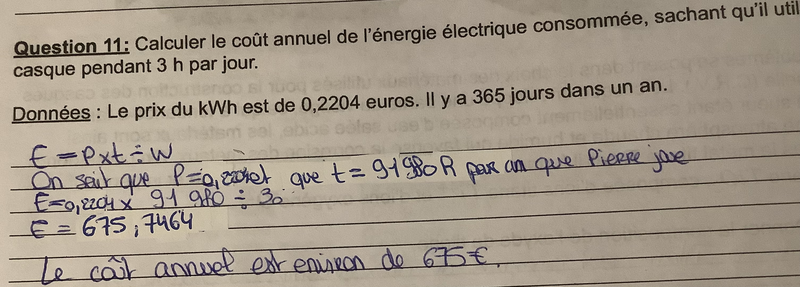 Question 11: Calculer le coût annuel de l'énergie électrique consommée, sachant qu'il util
casque pendant 3 h par jour.
Données : Le prix du kWh est de 0,2204 euros. Il y a 365 jours dans un an.
E = P x t ÷ W
On sait que P = 0,2204 et que t = 91 980 h par an que Pierre joue
E = 0,2204 x 91 980 ÷ 30
E = 675,7464
Le coût annuel est eniron de 675€.